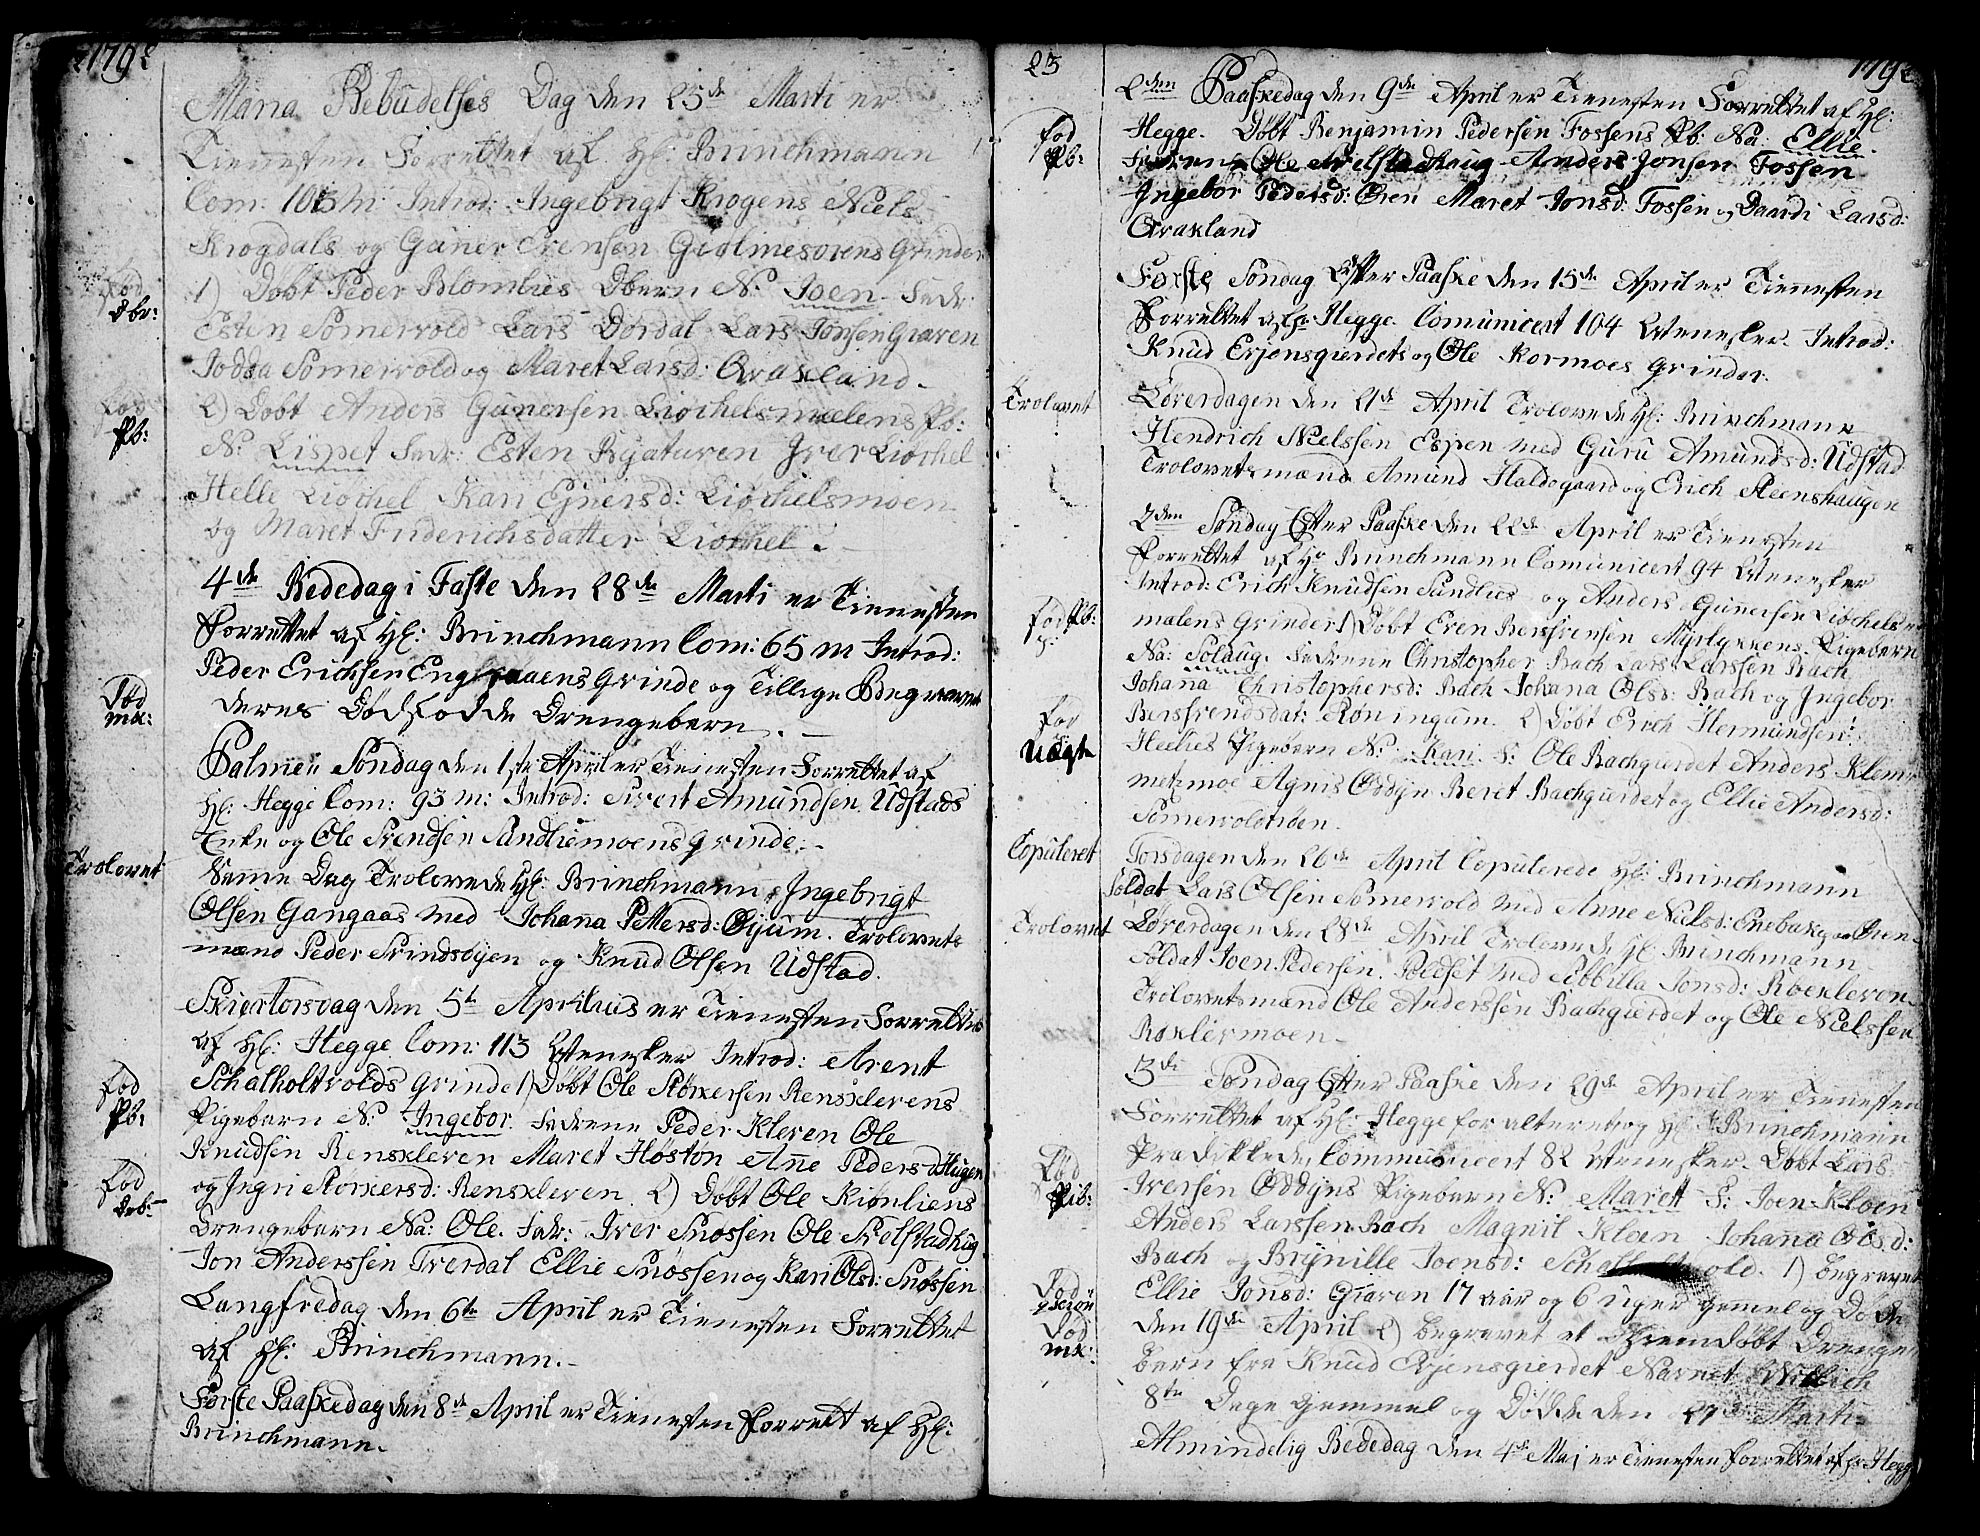 1792
Maria Bebudelses Dag den 25de Marti er
Tienesten Forrettet af Hl: Brinchmann
Com: 105 M: Introd: Ingebrigt Krogens Niels
Krogdals og Guner Evensen Giolmesørens Grinder
fød
dbr:
1) Døbt Peder Blomlies Dbern N: Joen Fadr:
Esten Somervold Lars Dørdal Lars Jonsen Graven
Jodda Somervold og Maret Larsd: Qvakland.
fød
Pb:
2) Døbt Anders Gunersen Liøchelsmælens Pb:
N: Lispet Fadr: Esten Ryaturen Iver Liøchel
Helle Liøchel Kari Ejnersd: Liøchelsmoen
og Maret Friderichsdatter Liøchel.
4de Bededag i Faste den 28de Marti er Tienesten
Forrettet af Hl: Brinchmann Com: 65 m Introd:
Peder Erichsen Engesaaens Grinde og Tillige Begravet
død
mk:
deres Dødfødde Drengebern.
Palmen Søndag den 1ste April er Tienesten Forrettet af
Hl: Hegge Com: 93 m: Introd: Sivert Amundsen Udstads
Enke og Ole Svendsen Sandliemoens Grinde.
Trolovet
Samme Dag Trolovede Hl: Brinchmann Ingebrigt
Olsen Gangaas med Johana Pettersd: Øyum. Trolovets
mænd Peder Svindsøyen og Knud Olsen Udstad.
Skiertorsdag den 5te Aprilius er Tienesten Forrettet
af Hl: Hegge Com: 113 Mennesker Introd: Arent
Schalholtvolds Grinde 1) Døbt Ole Størkersen Rensklevens
fød
Pb:
Pigebarn N: Ingebor. Fadrene Peder Kleven Ole
Knudsen Renskleven Maret Høston Ane Pedersd Haugen
og Ingri Storkersd: Renskleven. 2) Døbt Ole Kiønliens
fød
Deb:
Drengebarn Na: Ole. Fadr: Iver Snossen Ole Svelstadhug
Jon Anderssen Tverdal Ellie Snøssen og Kari Olsd: Snøssen
Langfredag den 6te April er Tienesten Forrettet
af Hl: Brinchmann.
Første Paaskedag den 8de April er Tienesten Forrett af Hl:
Brinchmann.
23
1792
2den Paaskedag den 9de April er Tienesten Forrettet af Hl:
fød
Pb:
Hegge. Døbt Benjamin Pedersen Fossens Pb: Na: Ellie.
Fadrene Ole Svelstadhaug Anders Jonsen Fossen
Ingebor Pedersd: Øren Maret Jonsd: Fossen og Daardi Larsd:
Qvakland
Første Søndag Efter Paaske den 15de April er Tienesten
Forrettet af Hr Hegge. Comunicert 104 Mennesker. Introd:
Knud Evjensgierdets og Ole Kormoes Grinder.
Trolovet
Løverdagen den 21de April Trolovede Hl: Brinchmann
Hendrich Nielssen Espen med Guru Amundsd: Udstad
Trolovetsmænd Amund Haldogaard og Erich Steenshaugen
2den Søndag Efter Paaske den 22de April er Tienesten
Forrettet af Hr Brinchmann Comunicert 94 Mennesker
Introd: Erich Knudsen Sundlies og Anders Gunnersen Liøchels
fød Pb:
mælens Grinder 1) Døbt Even Bersvensen Myrlykkens Pigebarn
Na: Solaug. Fadrene Christopher Bach Lars Larssen Bach
Johana Christophersd: Bach Johana Olsd: Bach og Ingebor
fød
Uægte
Bersvendsdat: Røningum. 2) Døbt Erich Hermundsen
Heelies Pigebarn N: Kari. F: Ole Bachgierdet Anders Klem
metzmoe Agnis Oddyn Beret Bachgierdet og Ellie Andersd:
Somervoldøien.
Copuleret
Torsdagen den 26de April Copulerede Hl: Brinchmann
Soldat Lars Olsen Somervold med Anne Nielsd: Enebakg. Øren
Trolovet
Løverdagen den 28de April Trolovede Hl: Brinchmann
Soldat Joen Pedersen Poldset med Sebbilla Jonsd: Rokleven
Trolovetsmænd Ole Anderssen Bachgierdet og Ole Nielssen
Roklermoen.
3de Søndag Efter Paaske den 29de April er Tienesten
Forrettet af Hl: Hegge for alteret og Hl: Brinchmann
fød
Pib:
Prædikkede, Communicert 82 Mennesker. Døbt Lars
Iversen Oddyns Pigebarn N: Marett F: Joen Kloen
Anders Larssen Bach Magnil Kloen Johana Olsd:
Bach og Brynille Joensd: Schalholtvold. 1) begravet
Død
qvkiøn
Ellie Jonsd: Graven 17 aar og 6 uger gemel og Døde
Død
mk:
den 19de April 2) begravet et Hiemdøbt Drenge
bern fra Knud Evjensgierdet Navnet Willich
8te Dage gammel og Døde den 27de Marti
Almindelig Bededag den 4de Maj er Tienesten Forrettet af Hr Hegge